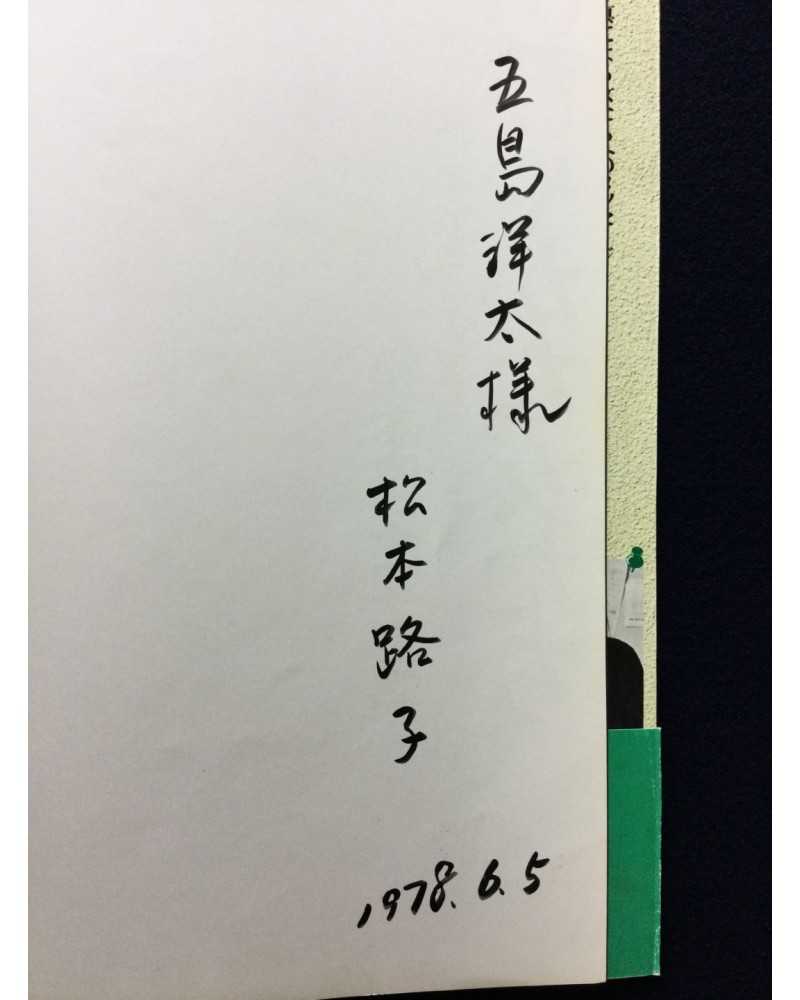 五島洋太様
松本路子
1978.6.5